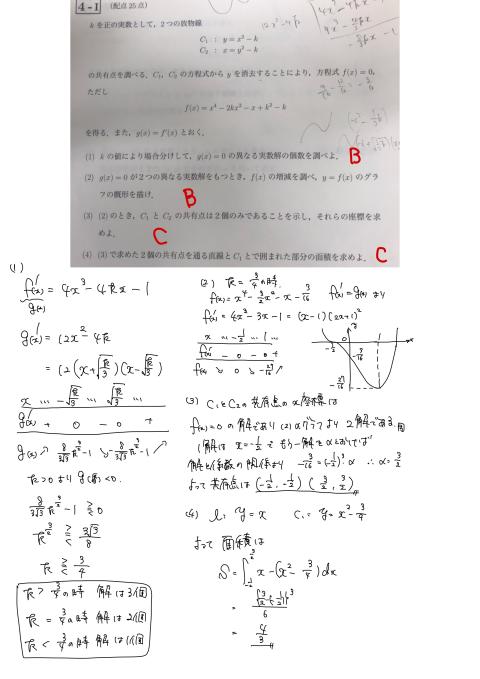 4-1 (配点25点)
kを正の実数として，2つの放物線
C₁ : y=x²-k
C₂ : x=y²-k
の共有点を調べる．C₁，C₂の方程式からyを消去することにより，方程式 f(x)=0，
ただし
f(x)=x⁴-2kx²-x+k²-k
を得る．また，g(x)=f'(x)とおく．
(1) kの値により場合分けして，g(x)=0の異なる実数解の個数を調べよ． B
(2) g(x)=0が2つの異なる実数解をもつとき，f(x)の増減を調べ，y=f(x)のグラ
フの概形を描け． B
(3) (2)のとき，C₁とC₂の共有点は2個のみであることを示し，それらの座標を求
めよ． C
(4) (3)で求めた2個の共有点を通る直線とC₁とで囲まれた部分の面積を求めよ． C
(1)
f'(x) = 4x³-4kx-1
g(x)
g'(x) = 12x²-4k
= 12(x+√(k/3))(x-√(k/3))
x … -√(k/3) … √(k/3) …
g'(x) + 0 - 0 +
g(x) ↗ 8/(3√3) k^(3/2) -1 ↘ -8/(3√3) k^(3/2) -1 ↗
8/(3√3) k^(3/2) -1 ⪌ 0
k^(3/2) ⪌ 3√3/8
k ⪌ 3/4
k > 3/4の時 解は3個
k = 3/4の時 解は2個
k < 3/4の時 解は1個
(2) k = 3/4の時
f(x) = x⁴ - 3/2x² - x - 3/16 f'(x) = g(x)より
f'(x) = 4x³-3x-1 = (x-1)(2x+1)²
x … -1/2 … 1 …
f'(x) - 0 - 0 +
f(x) ↘ 0 ↘ -27/16 ↗
(3) C₁とC₂の共有点のx座標は
f(x)=0の解であり(2)のグラフより2解である
1解は x=-1/2で もう一解をαとおけば
解と係数の関係より -3/16 = (-1/2)³·α ∴ α = 3/2
よって共有点は (-1/2, -1/2) (3/2, 3/2)
(4) l: y=x C₁: y=x²-3/4
よって面積は
S = ∫ x-(x²-3/4)dx
= {3/2+1/2}³/6
= 4/3